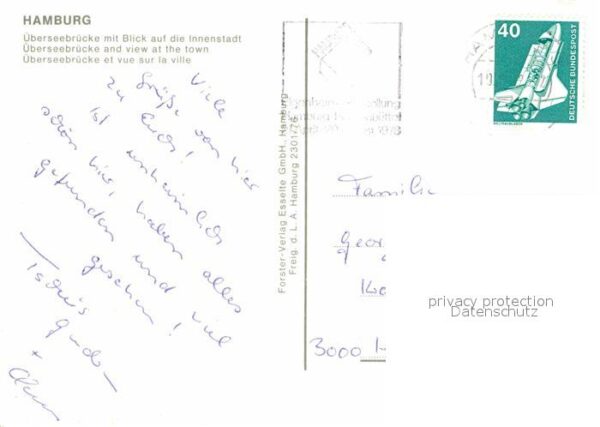 HAMBURG
Überseebrücke mit Blick auf die Innenstadt
Überseebrücke and view at the town
Überseebrücke et vue sur la ville
Viele
Grüße von hier
zu Euch!
Ist unheimlich
schön hier, haben alles
gefunden und viel
gesehen!
Forster-Verlag Esselte GmbH, Hamburg
Freig. d. L. A. Hamburg 2301/76
40
DEUTSCHE BUNDESPOST
1978
Familie
Geor
3000 H
privacy protection
Datenschutz